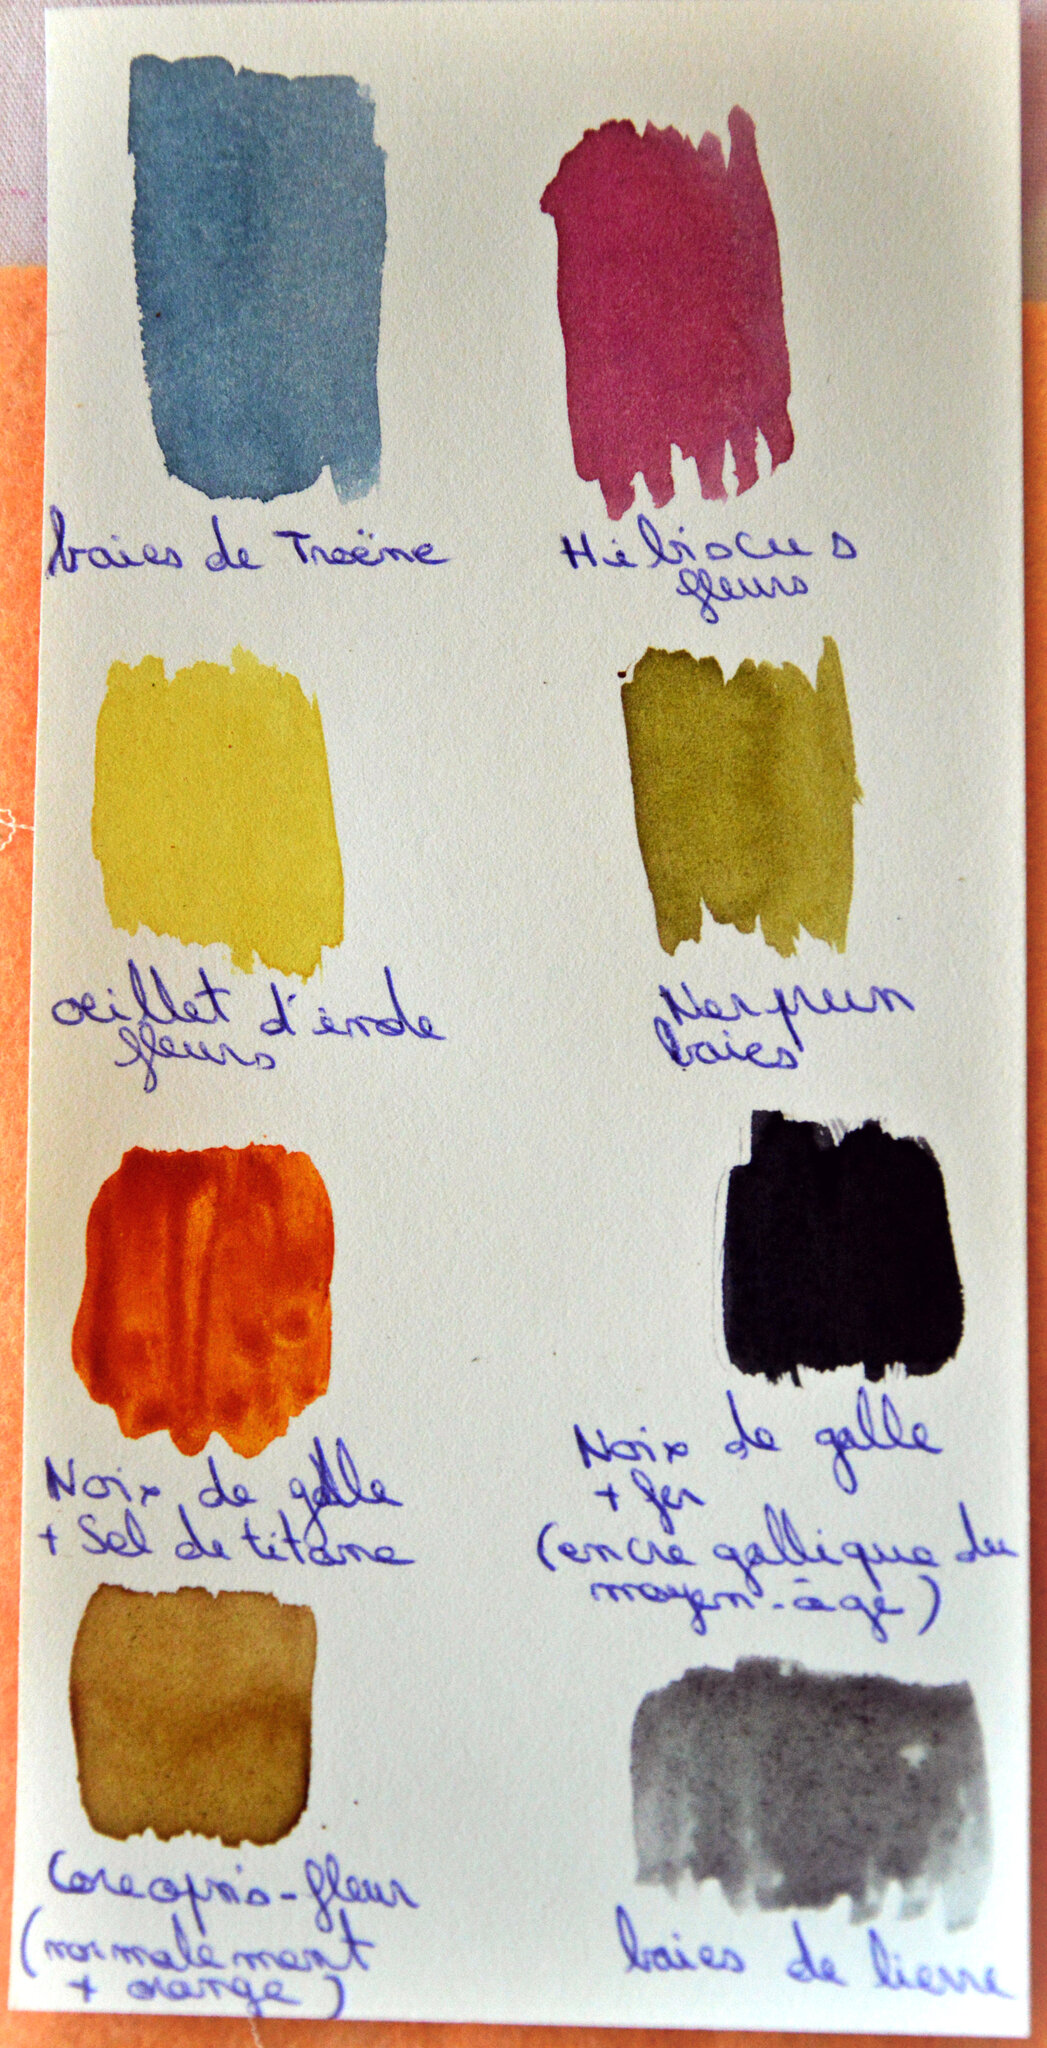 baies de Troëne
Hibiscus
fleurs
œillet d'inde
fleurs
Nerprun
baies
Noix de galle
+ Sel de titane
Noix de galle
+ fer
(encre gallique du
moyen-âge)
Coreopsis-fleur
(normalement
+ orange)
baies de lierre